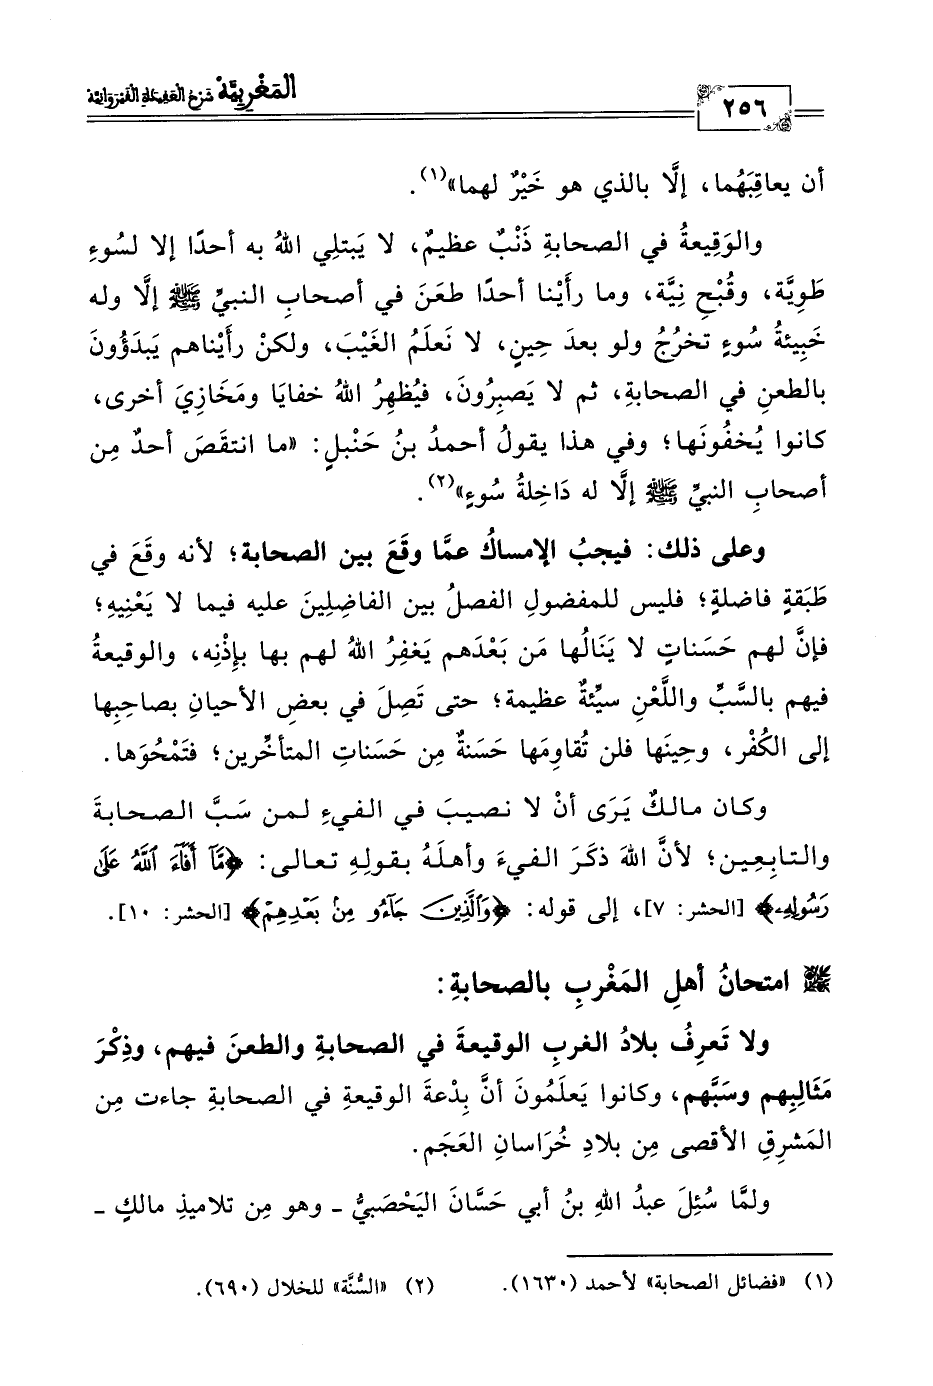 المَغْرِبيَّة شَرْحُ العَقِيدَةِ القَيْرَوَانِيَّة
٢٥٦
أن يعاقِبَهُما، إلَّا بالذي هو خَيْرٌ لهما»(١).
والوَقِيعةُ في الصحابةِ ذَنْبٌ عظيمٌ، لا يَبتلِي اللهُ به أحدًا إلا لسُوءِ
طَوِيَّة، وقُبْحِ نِيَّة، وما رأَيْنا أحدًا طعَنَ في أصحابِ النبيِّ ﷺ إلَّا وله
خَبِيئةُ سُوءٍ تخرُجُ ولو بعدَ حِينٍ، لا نَعلَمُ الغَيْبَ، ولكنْ رأَيْناهم يَبدَؤُونَ
بالطعنِ في الصحابةِ، ثم لا يَصبِرُونَ، فيُظهِرُ اللهُ خفايَا ومَخَازِيَ أخرى،
كانوا يُخفُونَها؛ وفي هذا يقولُ أحمدُ بنُ حَنْبلٍ: «ما انتقَصَ أحدٌ مِن
أصحابِ النبيِّ ﷺ إلَّا له دَاخِلةُ سُوءٍ»(٢).
وعلى ذلك: فيجبُ الإمساكُ عمَّا وقَعَ بين الصحابة؛ لأنه وقَعَ في
طَبَقةٍ فاضلةٍ؛ فليس للمفضولِ الفصلُ بين الفاضِلِينَ عليه فيما لا يَعْنِيهِ؛
فإنَّ لهم حَسَناتٍ لا يَنَالُها مَن بَعْدَهم يَغفِرُ اللهُ لهم بها بإِذْنِه، والوقيعةُ
فيهم بالسَّبِّ واللَّعْنِ سيِّئةٌ عظيمة؛ حتى تَصِلَ في بعضِ الأحيانِ بصاحِبِها
إلى الكُفْر، وحِينَها فلن تُقاوِمَها حَسَنةٌ مِن حَسَناتِ المتأخِّرين؛ فتَمْحُوَها.
وكان مالكٌ يَرَى أنْ لا نصيبَ في الفيءِ لمن سَبَّ الصحابةَ
والتابِعِين؛ لأنَّ اللهَ ذكَرَ الفيءَ وأهلَهُ بقولِهِ تعالى: ﴿مَّآ أَفَآءَ ٱللَّهُ عَلَىٰ
رَسُولِهِۦ﴾ [الحشر: ٧]، إلى قوله: ﴿وَٱلَّذِينَ جَآءُو مِنۢ بَعْدِهِمْ﴾ [الحشر: ١٠].
امتحانُ أهلِ المَغْرِبِ بالصحابةِ:
ولا تَعرِفُ بلادُ الغربِ الوقيعةَ في الصحابةِ والطعنَ فيهم، وذِكْرَ
مَثَالِبِهم وسَبَّهم، وكانوا يَعلَمُونَ أنَّ بِدْعةَ الوقيعةِ في الصحابةِ جاءت مِن
المَشرِقِ الأقصى مِن بلادِ خُرَاسانِ العَجَم.
ولمَّا سُئِلَ عبدُ اللهِ بنُ أبي حَسَّانَ اليَحْصَبيُّ ـ وهو مِن تلاميذِ مالكٍ ـ
(١) «فضائل الصحابة» لأحمد (١٦٣٠). (٢) «السُّنَّة» للخلال (٦٩٠).